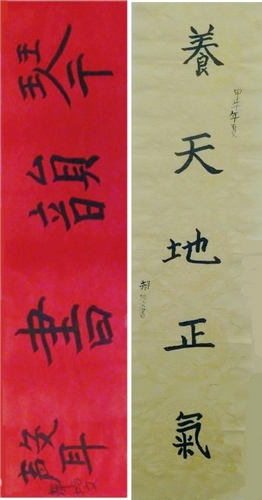 琴韻書聲
養天地正氣
甲午年夏